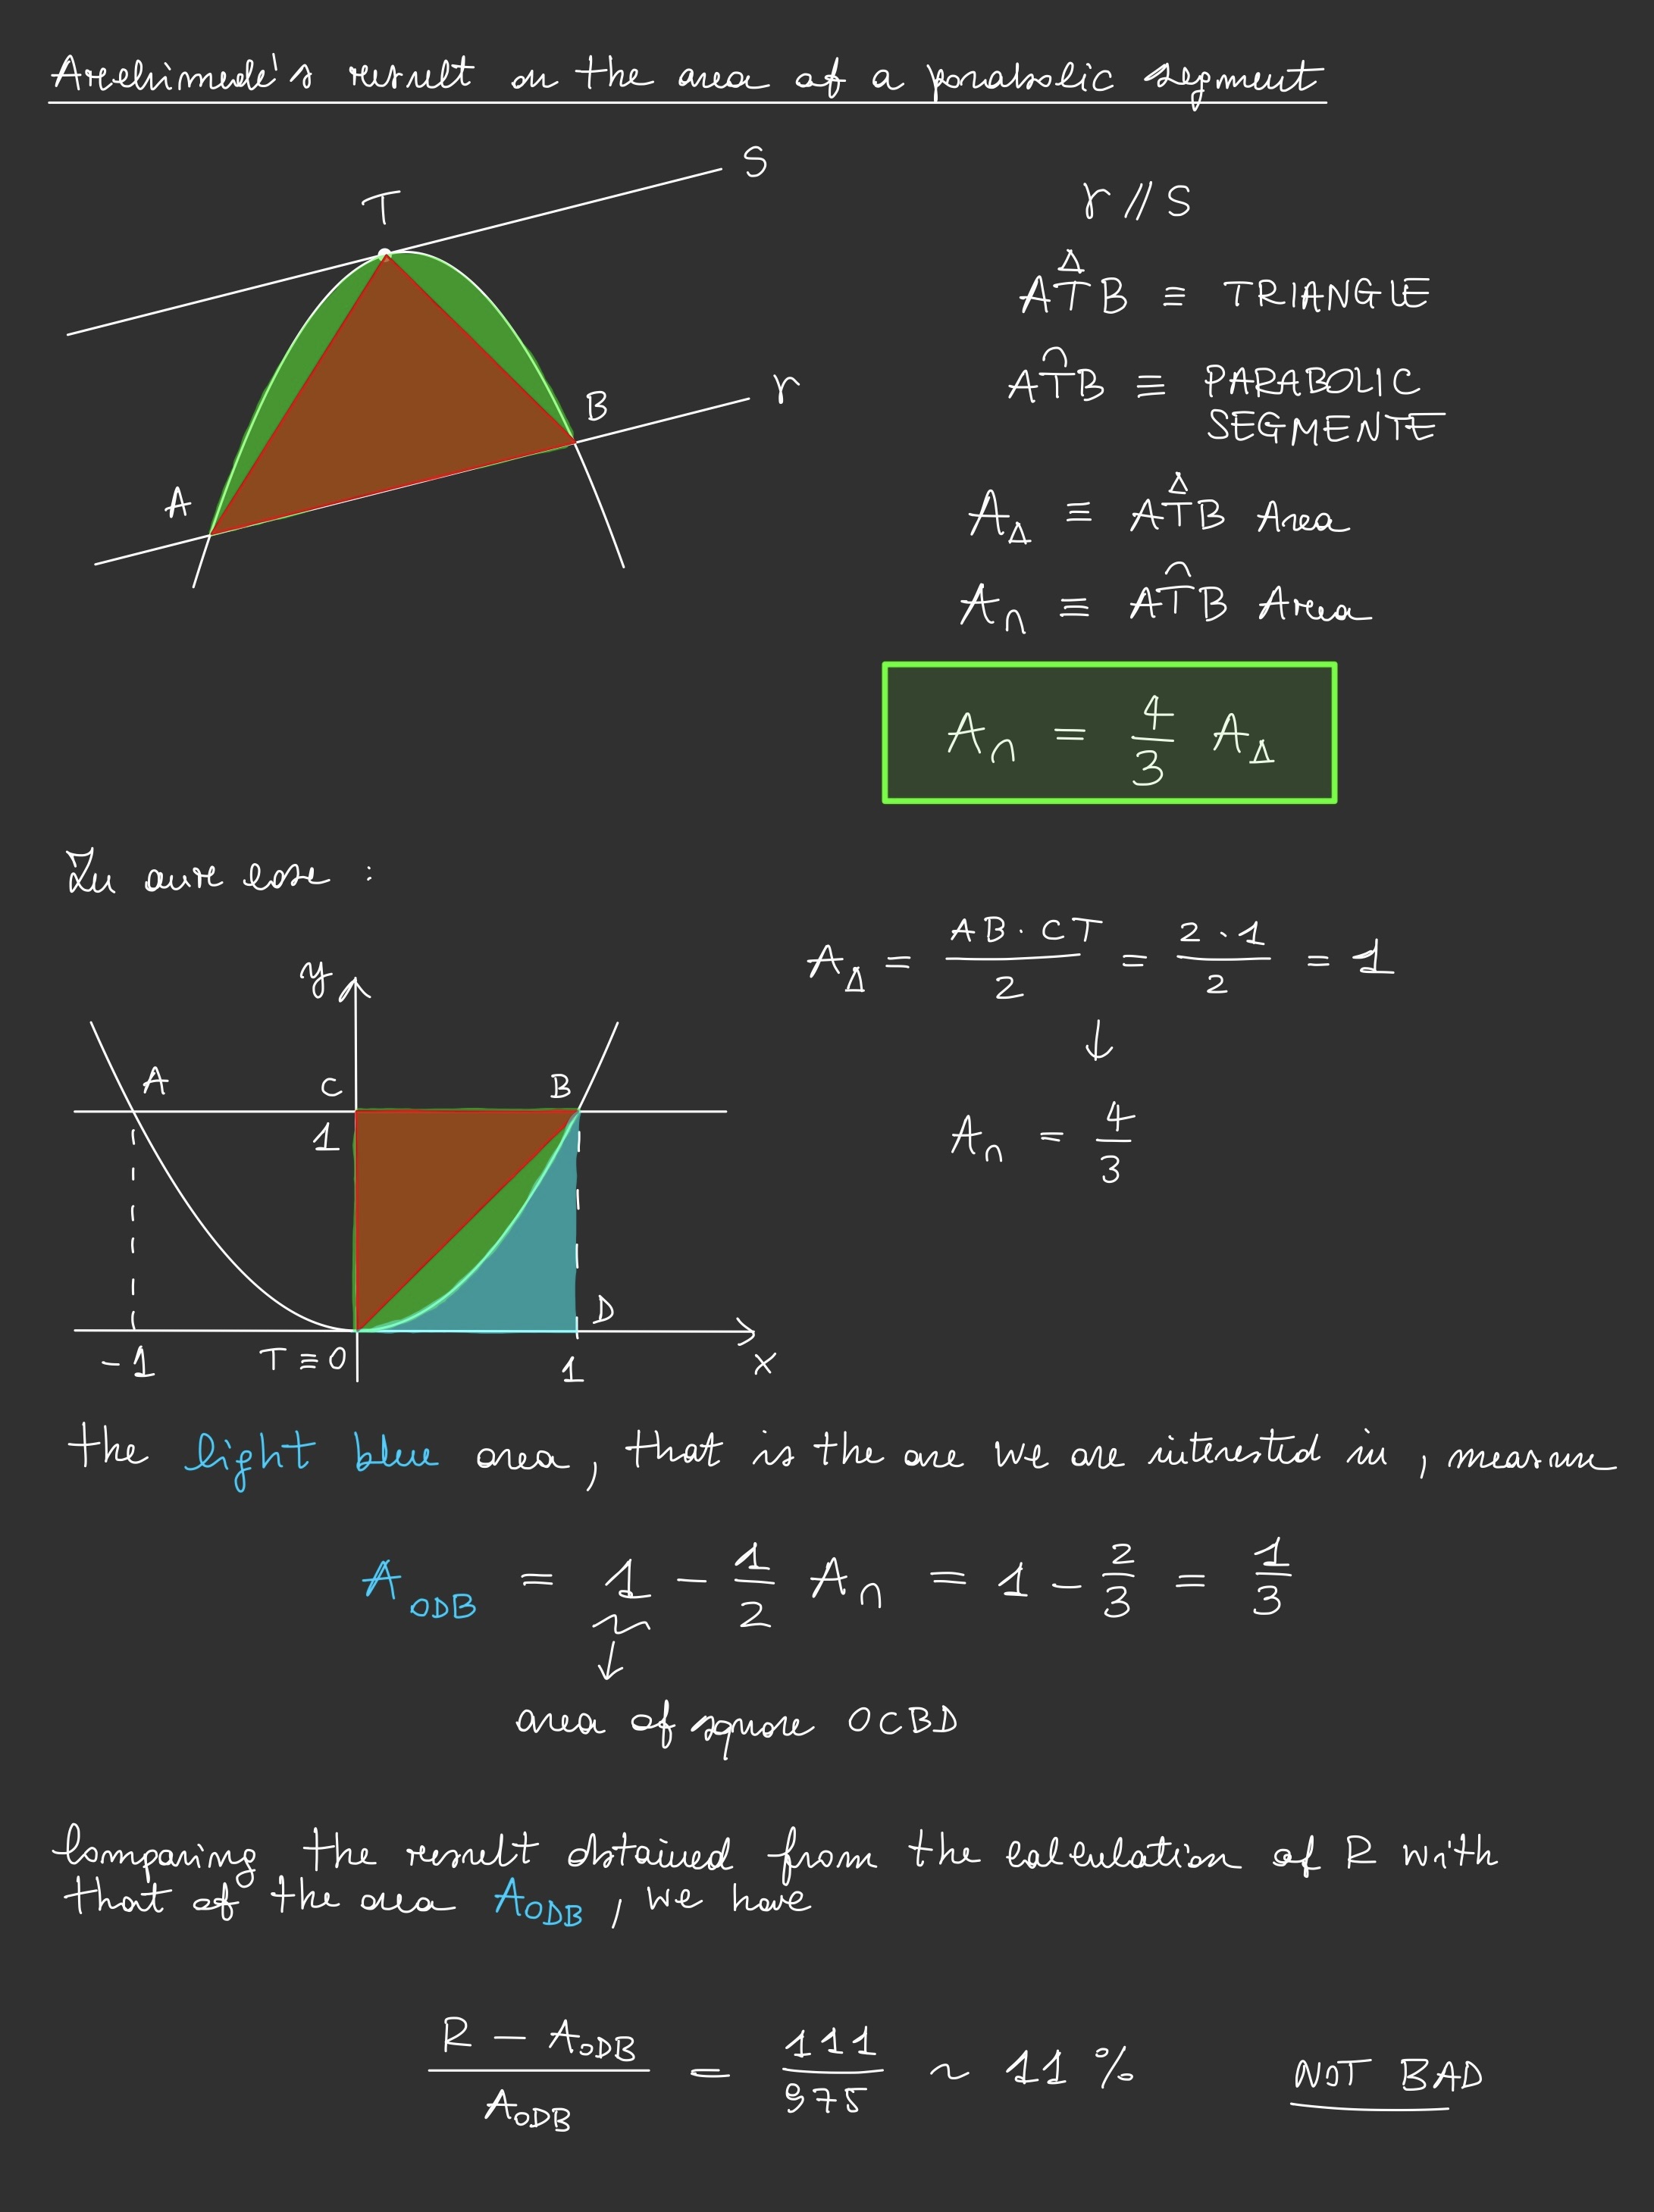 Archimede's result on the area of a parabolic segment
S
T
r // S
AT̂B ≡ TRIANGLE
B
r
AT̂B ≡ PARABOLIC
SEGMENTE
A
A_Δ ≡ AT̂B Area
A_∩ ≡ AT̂B Area
A_∩ = 4/3 A_Δ
In our case :
A_Δ = AB · CT / 2 = 2 · 1 / 2 = 1
↓
y
A C B
1
A_∩ = 4/3
D
-1 T ≡ O 1 x
the light blue area, that is the one we are interested in, measure
A_ODB = 1 - 1/2 A_∩ = 1 - 2/3 = 1/3
↓
area of square OCBD
Comparing the result obtained from the calculation of R with
that of the area A_ODB, we have
R - A_ODB / A_ODB = 111/975 ~ 11 % NOT BAD